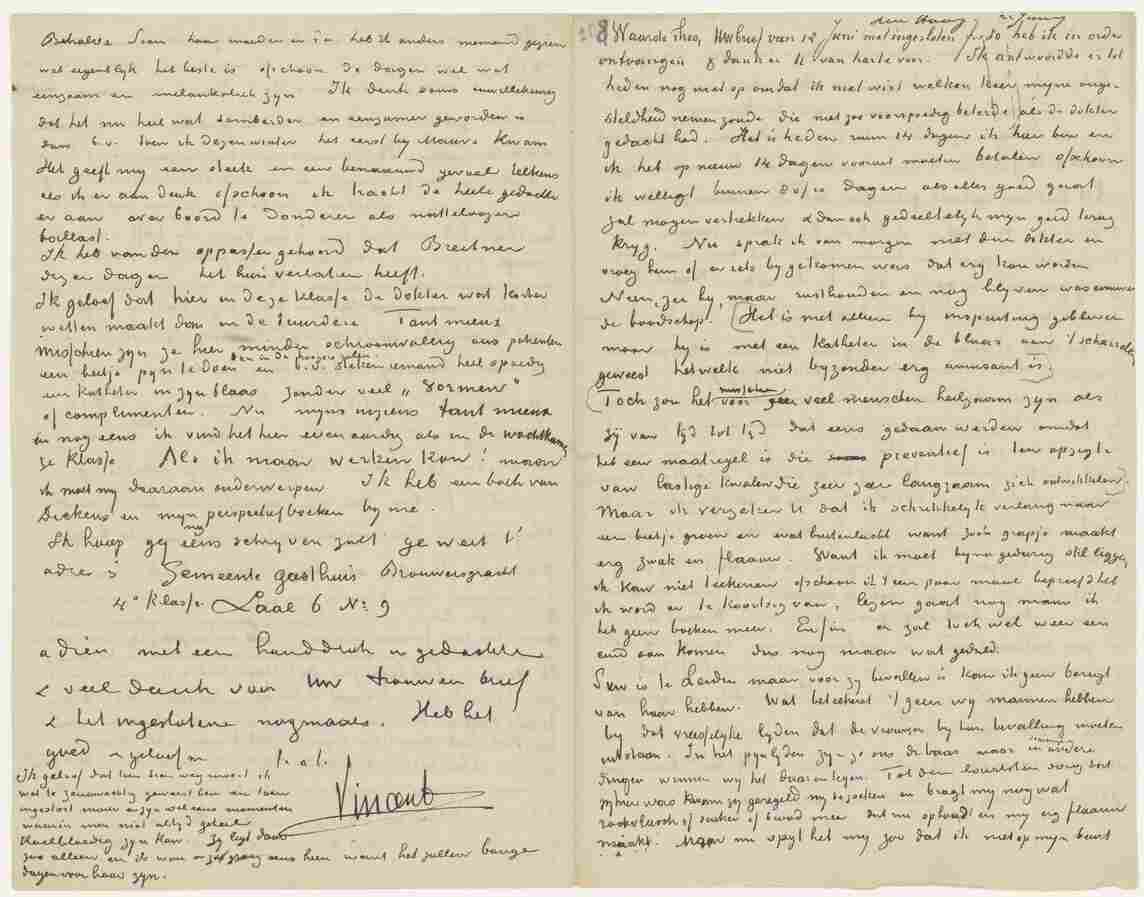 Behalve Sien haar moeder en Pa heb ik anders niemand gezien
wat eigentlijk het beste is ofschoon de dagen wel wat
eenzaam en melankoliek zijn Ik denk soms onwillekeurig
dat het nu heel wat somberder en eenzamer geworden is
dan b.v. toen ik dezen winter het eerst by Mauve kwam
Het geeft my een steek en een benaauwd gevoel telkens
als ik er aan denk ofschoon ik tracht de heele gedachte
er aan over boord te donderen als nutteloozen
ballast.
Ik heb van den oppasser gehoord dat Breitner
dezer dagen het huis verlaten heeft.
Ik geloof dat hier in deze klasse de dokter wat korter
wetten maakt dan in de duurdere Tant mieux
misschien zyn ze hier minder schroomvallig om patienten
een beetje pyn te doen dan in de hoogere zalen en b.v. steken iemand heel spoedig
een Katheter in zyn blaas zonder veel „vormen”
of complimenten. Nu myns inziens tant mieux
en nog eens ik vind het hier even aardig als in de wachtkamer
3e Klasse Als ik maar werken kon! maar
ik moet my daaraan onderwerpen Ik heb een boek van
Dickens en myn perspectief boeken by me.
Ik hoop gy my eens schryven zult ge weet 't
adres is Gemeente gasthuis Brouwersgracht
4e Klasse Zaal 6 No 9
adieu met een handdruk in gedachten
& veel dank voor Uw trouwen brief
& het ingeslotene nogmaals. Heb het
goed & geloof m t. à t.
Vincent
Ik geloof dat toen Sien weg moest ik
wat te zenuwachtig geweest ben en toen
ingestort maar er zyn wel eens momenten
waarin men niet altyd geheel
Kaelbloedig zyn kan. Zy ligt daar
zoo alleen en ik wou er zoo graag eens heen want het zullen bange
dagen voor haar zyn.
den Haag 22 Juny
Waarde Theo, Uw brief van 12 Juni met ingesloten frs 50 heb ik in orde
ontvangen & dank er U van harte voor. Ik antwoordde er tot
heden nog niet op omdat ik niet wist welken keer myne onge-
steldheid nemen zoude die niet zoo voorspoedig beterde als de dokter
gedacht had. Het is heden ruim 14 dagen ik hier ben en
ik het op nieuw 14 dagen vooruit moeten betalen ofschoon
ik welligt binnen 8 of 10 dagen als alles goed gaat
zal mogen vertrekken & dan ook gedeeltelyk myn geld terug
kryg. Nu sprak ik van morgen met den dokter en
vroeg hem of er iets by gekomen was dat erg kon worden
Neen, zei hy, maar rusthouden en nog blyven was ommers
de boodschap. (Het is niet alleen by inspuiting gebleven
maar hy is met een Katheter in de blaas aan 't scharrelen
geweest hetwelk niet byzonder erg amusant is).
(Toch zou het misschien voor zeer veel menschen heilzaam zyn als
zy van tyd tot tyd dat eens gedaan werden omdat
het een maatregel is die preventief is ten opzigte
van lastige kwalen die zeer zeer langzaam zich ontwikkelen).
Maar ik verzeker U dat ik schrikkelyk verlang naar
een beetje groen en wat buitenlucht want zoo'n grapje maakt
erg zwak en flaauw. Want ik moet byna gedurig stil liggen,
ik kan niet teekenen ofschoon ik 't een paar maal beproefd heb
ik word er te koortsig van, lezen gaat nog maar ik
heb geen boeken meer. Enfin er zal toch wel weer een
eind aan komen dus nog maar wat geduld.
Sien is te Leiden maar voor zy bevallen is kan ik geen berigt
van haar hebben. Wat beteekent 't geen wy mannen hebben
by dat vreesselyke lyden dat de vrouwen by hun bevalling moeten
uitstaan. In het pynlyden zyn ze ons de baas maar in andere
dingen winnen wy het daarentegen. Tot den laatsten dag dat
zy hier was kwam zy geregeld my bezoeken en bragt my nog wat
rookvleesch of suiker of brood mee dat nu ophoudt en my erg flaauw
maakt. Maar nu spyt het my zoo dat ik niet op myn beurt